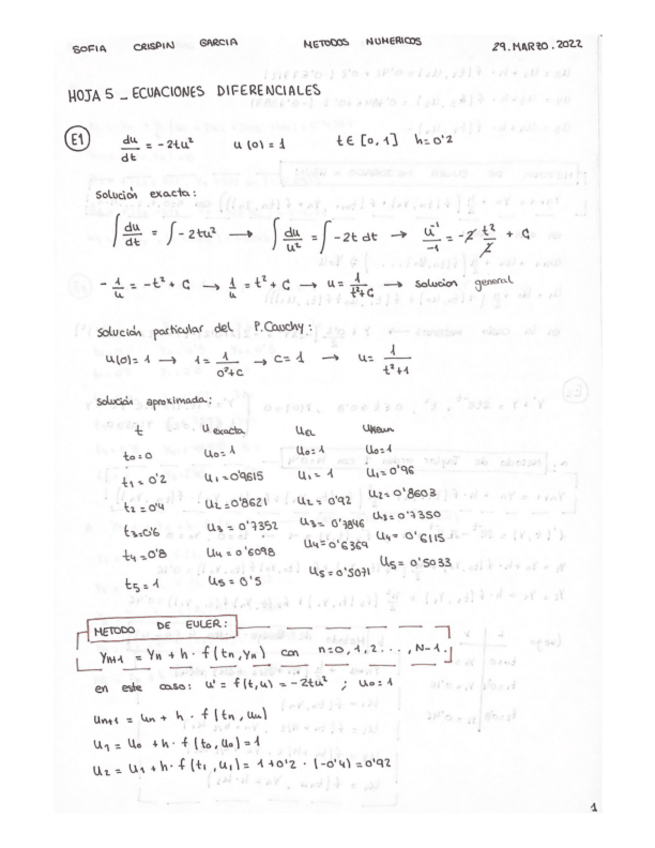 SOFIA CRISPIN GARCIA METODOS NUMERICOS 29.MARZO.2022
HOJA 5 _ ECUACIONES DIFERENCIALES
E1 du/dt = -2tu² u(0)=1 t∈[0,1] h=0'2
Solución exacta:
∫ du/dt = ∫ -2tu² → ∫ du/u² = ∫ -2t dt → u⁻¹/-1 = -2 t²/2 + C
- 1/u = -t² + C → 1/u = t² + C → u = 1/t²+C → solucion general
Solución particular del P.Cauchy:
u(0)=1 → 1 = 1/0²+C → C=1 → u = 1/t²+1
Solución aproximada:
t u exacta u EU u Heun
t₀=0 u₀=1 u₀=1 u₀=1
t₁=0'2 u₁=0'9615 u₁=1 u₁=0'96
t₂=0'4 u₂=0'8621 u₂=0'92 u₂=0'8603
t₃=0'6 u₃=0'7352 u₃=0'7846 u₃=0'7350
t₄=0'8 u₄=0'6098 u₄=0'6369 u₄=0'6115
t₅=1 u₅=0'5 u₅=0'5071 u₅=0'5033
METODO DE EULER:
Yn+1 = Yn + h · f(tn,Yn) con n=0,1,2...,N-1.
en este caso: u' = f(t,u) = -2tu² ; u₀=1
un+1 = un + h · f(tn, un)
u₁ = u₀ + h · f(t₀,u₀) = 1
u₂ = u₁ + h · f(t₁,u₁) = 1+0'2 · (-0'4) = 0'92
1